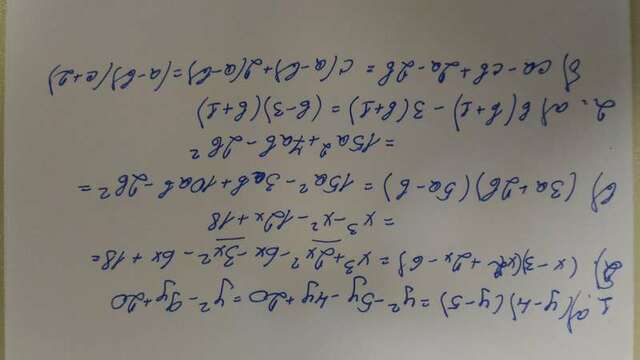 1. а) (y-4)(y-5) = y²-5y-4y+20 = y²-9y+20
б) (x-3)(x²+2x-6) = x³+2x²-6x-3x²-6x+18=
= x³-x²-12x+18
в) (3a+2b)(5a-b) = 15a²-3ab+10ab-2b²=
= 15a²+7ab-2b²
2. а) b(b+1)-3(b+1) = (b-3)(b+1)
б) ca-cb+2a-2b = c(a-b)+2(a-b)=(a-b)(c+2)